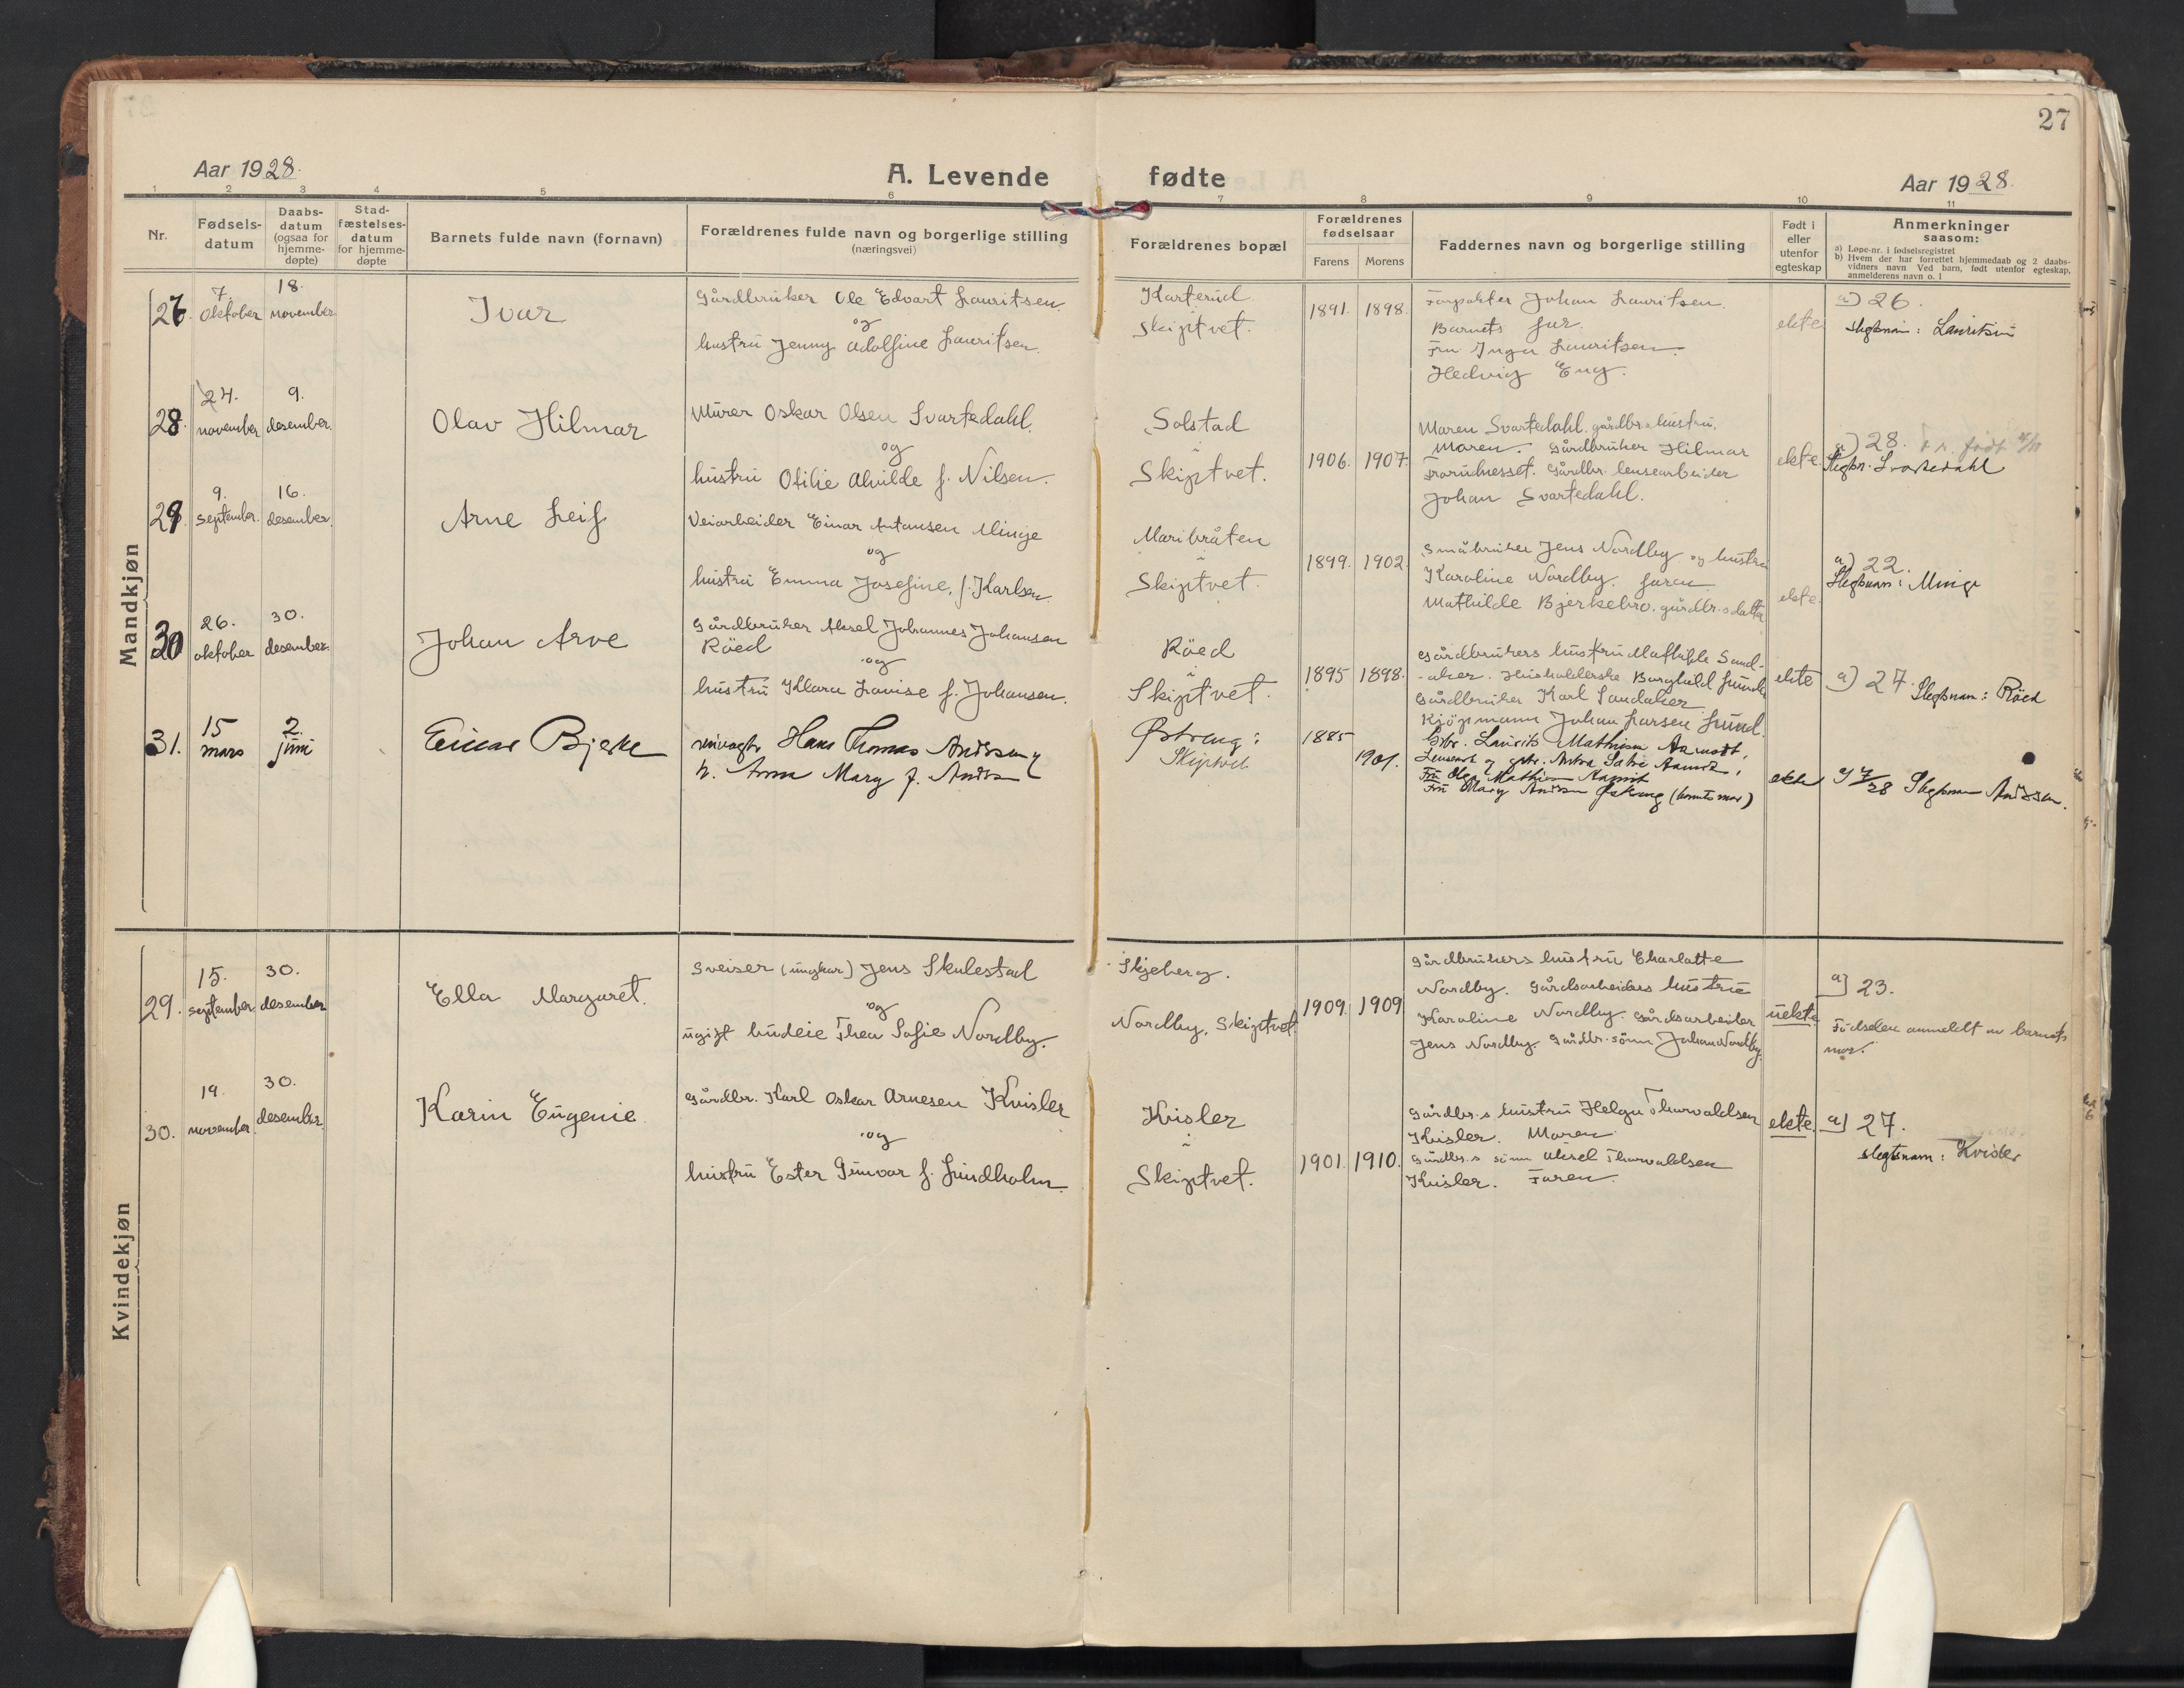 27
Aar 1928.
A. Levende fødte
Aar 1928.
1 2 3 4 5 6 7 8 9 10 11
Nr.
Fødsels-
datum
Daabs-
datum
(ogsaa for
hjemme-
døpte)
Stad-
fæstelses-
datum
for hjemme-
døpte
Barnets fulde navn (fornavn)
Forældrenes fulde navn og borgerlige stilling
(næringsvei)
Forældrenes bopæl
Forældrenes
fødselsaar
Farens Morens
Faddernes navn og borgerlige stilling
Født i
eller
utenfor
egteskap
Anmerkninger
saasom:
a) Løpe-nr. i fødselsregistret
b) Hvem der har forrettet hjemmedaab og 2 daabs-
vidners navn Ved barn, født utenfor egteskap,
anmelderens navn o. l
Mandkjøn
27.
7.
oktober
18.
november.
Ivar
Gårdbruker Ole Edvart Lauritsen
og
hustru Jenny Adolfine Lauritsen.
Karterud
Skiptvet.
1891. 1898.
Forpakter Johan Lauritsen.
Barnets far.
Fru Inga Lauritsen.
Hedvig Eng.
ekte
a) 26.
slegtsnavn: Lauritsen
28.
24.
november
9.
desember.
Olav Hilmar
Murer Oskar Olsen Svartedahl.
og
hustru Otilie Alvilde f. Nilsen.
Solstad
i
Skiptvet.
1906. 1907.
Maren Svartedahl. gårdbr.s hustru.
Moren. Gårdbruker Hilmar
Gårdbr. lensearbeider
Johan Svartedahl.
ekte.
a) 28.
Slegtsn. Svartedahl
29.
9.
september.
16.
desember.
Arne Leif
Veiarbeider Einar Antonsen Minge
og
hustru Emma Josefine, f. Karlsen.
Maribråten
i
Skiptvet.
1899. 1902.
Småbruker Jens Nordby og hustru
Karoline Nordby. faren
Mathilde Bjerkebro. gårdbr.s datter
ekte.
a) 22.
Slegtsnavn: Minge
30
26.
oktober
30.
desember.
Johan Arve
Gårdbruker Aksel Johannes Johansen
Röed
og
hustru Klara Lovise f. Johansen.
Röed
i
Skiptvet.
1895 1898.
Gårdbrukers hustru Mathilde Sand-
-aker. Husholderske Borghild Lunde
Gårdbruker Karl Sandaker
Kjöpmann Johan Larsen Lund.
ekte
a) 27.
Slegtsnavn: Röed
31.
15
mars
2.
juni
Einar Bjerke
Hans Thomas Andersen
h. Anna Mary f. Anders
Østreng i
Skiptvet
1885
1901.
Gbr. Laurits Mathisen Aamodt,
Fru Olga Mathisen Aamodt
Fru Mary Andersen Østreng (barnets mor)
ekte
Slegtsnavn Andersen.
Kvindekjøn
29.
15.
september
30.
desember
Ella Margaret.
Sveiser (ungkar) Jens Skulestad
og
ugift budeie Thea Sofie Nordby.
Skjeberg.
Nordby, Skiptvet.
1909. 1909
Gårdbrukers hustru Charlotte
Nordby. Gårdsarbeiders hustru
Karoline Nordby. Gårdsarbeider
Jens Nordby. Gårdbr. sönn Johan Nordby.
uekte
a) 23.
Födselen anmeldt av barnets
mor.
30.
19.
november
30.
desember.
Karin Eugenie
Gårdbr. Karl Oskar Arnesen Kvisler
og
hustru Ester Gunvor f. Lindholm.
Kvisler
i
Skiptvet.
1901. 1910.
Gårdbr.s hustru Helga Thorvaldsen
Kvisler. Moren
Gårdbr.s sönn Aksel Thorvaldsen
Kvisler. Faren.
ekte.
a) 27.
slegtsnavn: Kvisler